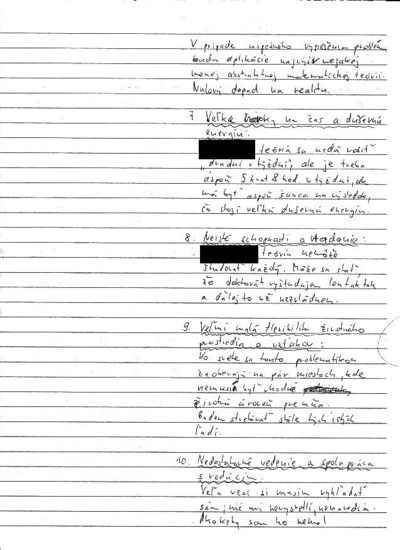 V prípade úspešného vyriešenia problému
budú aplikácie najvýš v nejakej
menej abstraktnej matematickej teórii.
Nulový dopad na realitu.
7. Veľké nároky na čas a duševnú
energiu:
teória sa nedá robiť
"dvadni v týždni", ale je treba
aspoň 5 krát 8 hod. v týždni, ak
má byť aspoň šanca na výsledok,
čo stojí veľkú duševnú energiu.
8. Neisté schopnosti a nadanie:
teóriu nemôže
študovať každý. Môže sa stať,
že doktorát vyštudujem len tak tak
a ďalej to už nezvládnem.
9. Veľmi malá flexibilita životného
prostredia a vzťahov:
Vo svete sa touto problematikou
zaoberajú na pár miestach, kde
nemusia byť vhodné
životná úroveň pre mňa.
Budem stretávať stále tých istých
ľudí.
10. Nedostatočné vedenie a spolupráca
s vedúcim.
Veľa vecí si musím vykladať
sám, iné mi nevysvetlí, nenavedie.
Akokeby som ho nemal